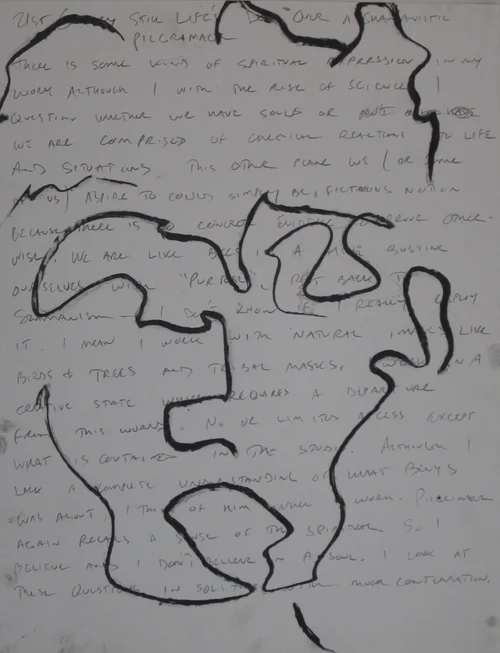 21st Century Still Life's Do Our a Shamanistic
Pilgramage
There is some kind of spiritual expression in my
work although I with the rise of science I
question whether we have souls or
we are comprised of chemical reactions to life
and situations. This other plane we (or some
of us) aspire to could simply be, fictitious notion
because there is no concrete evidence other-
wise. We are like bees in a hive busying
ourselves with "purpose", but back to
Shamanism — I don't know if I really employ
it. I mean I work with natural images like
birds & trees and tribal masks. Work in a
creative state which requires a departure
from this world. No or limited access except
what is contained in the studio. Although I
lack a complete understanding of what Beuys
was about, I think of him when I work. Pilgrimage
again recalls a sense of the spiritual so I
believe and I don't believe in a soul. I look at
these questions in solitude with much contemplation.